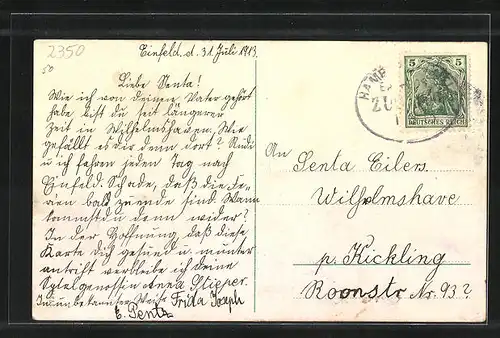 2350
50
Einfeld, d. 31 Juli 1913.
Liebe Senta!
Wie ich von deinen Vater gehört
habe bist du seit längerer
Zeit in Wilhelmshaven. Wie
gefällt es dir denn dort? Rudi
u ich fahren jeden Tag nach
Einfeld. Schade, daß die Fe-
rien bald zuende sind. Wann
kommst du denn wider?
In der Hoffnung, daß diese
Karte dich gesund u. munter
antrift verbleibe ich deine
Spielgenossin Anna Stieper.
In unbekannter Weise Frida Joseph
E. Pentz
5 5
DEUTSCHES REICH
HAMB
ZU
An
Senta Eilers.
Wilhelmshave
p. Kickling
Roonstr Nr. 93?